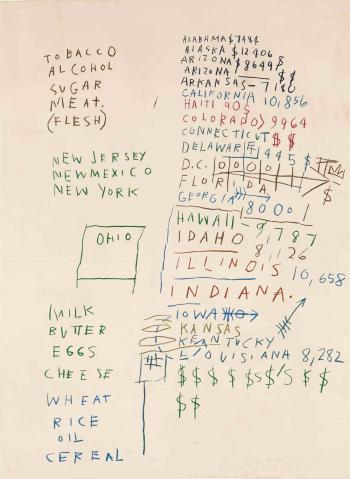 TOBACCO
ALCOHOL
SUGAR
MEAT.
(FLESH)
NEW JERSEY
NEWMEXICO
NEW YORK
OHIO
MILK
BUTTER
EGGS
CHEESE
WHEAT
RICE
OIL
CEREAL
ALABAMA $7484
ALASKA $12406
ARIZONA $8649
ARIZONA $$
ARKANSAS- 7180
CALIFORNIA 10,856
HAITI 90$
COLORADO 9964
CONNECTICUT $$
DELAWARE 1445 $
D.C. 0000
FLORIDA $
GEORGIA
8000 1
HAWAII- 9,787
IDAHO
8,126
ILLINOIS
10,658
INDIANA.
IOWA
KANSAS
KENTUCKY
LOUISIANA 8,282
$ $ $ $ $ $ $ $ $
$ $